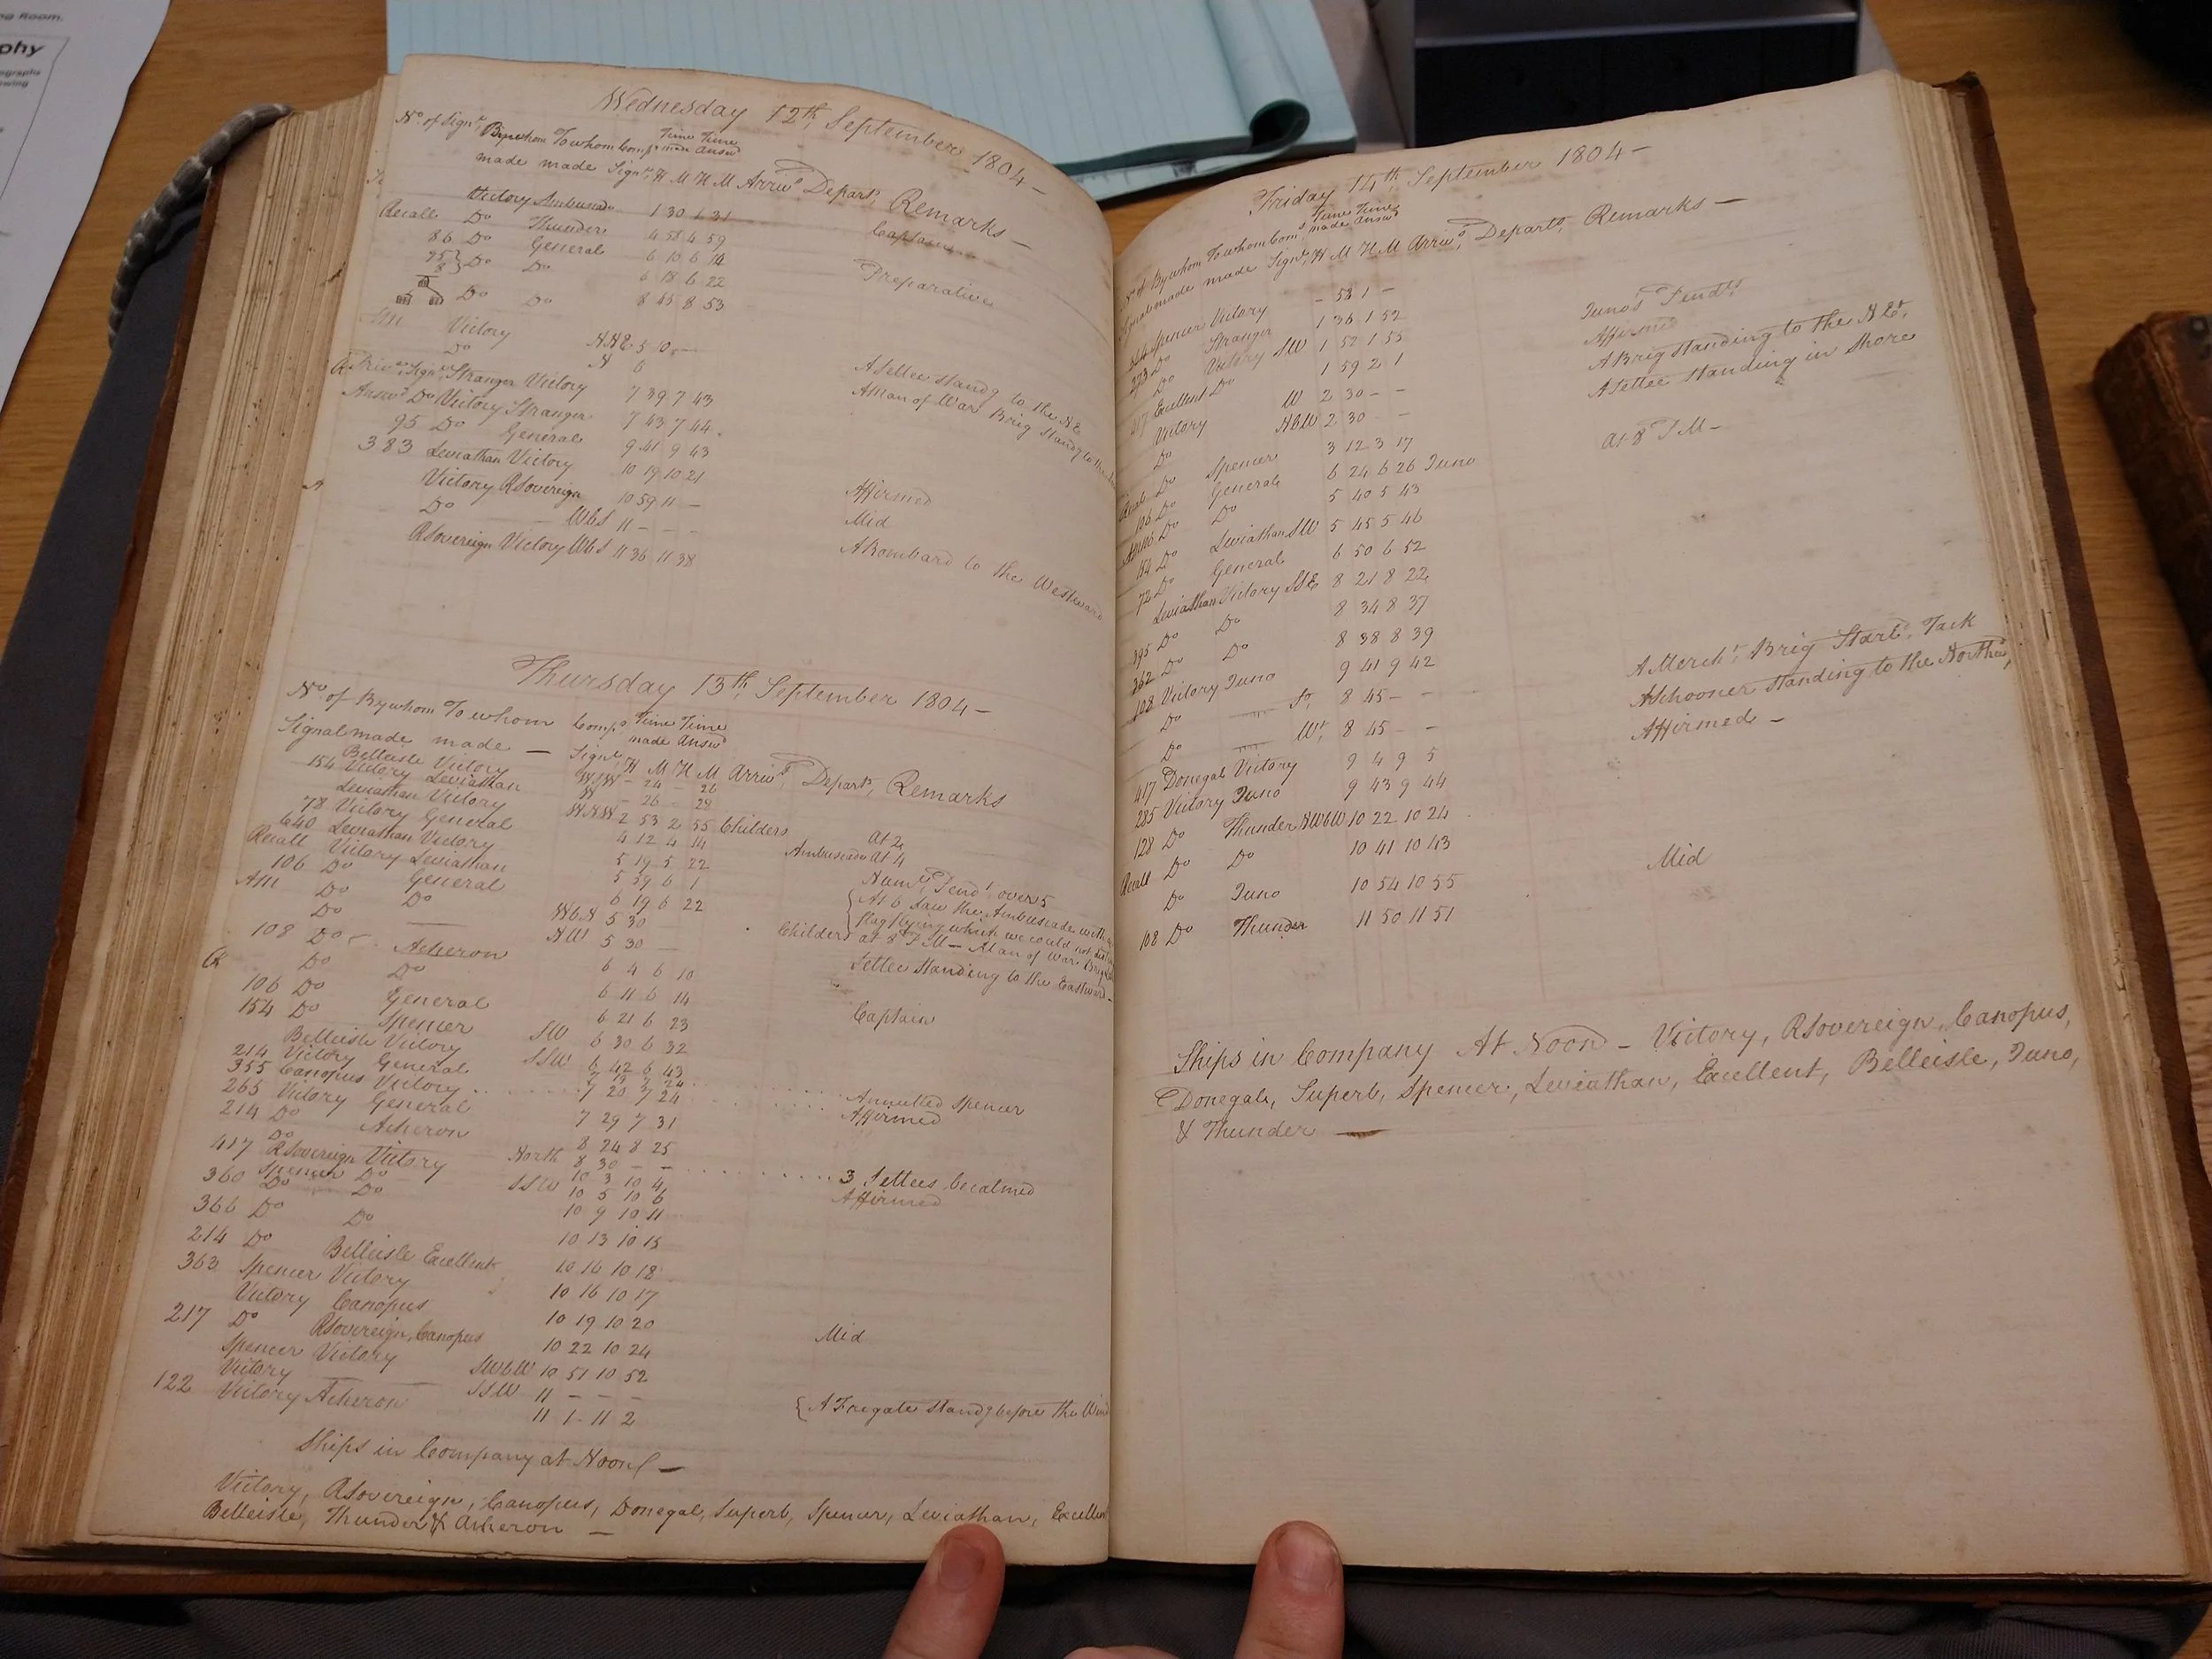 ng Room.
phy
ographs
owing
Wednesday 12th September 1804 —
No. of Signl. By whom To whom Comps. Time Time
made Answd
made made Signl. H M H M Arrivs. Departs. Remarks —
Victory Ambuscade 1 30 1 31 Captain
Recall Do Thunder 4 58 4 59
86 Do General 6 10 6 14 Preparative
Do Do 6 18 6 22
Do Do 8 45 8 53
AM Victory NNE 5 0 — A Settee standg to the NE
Do N 6 A Man of War Brig standg to the
Signl. Stranger Victory 7 39 7 43
Answd. Do Victory Stranger 7 43 7 44
95 Do General 9 41 9 43
383 Leviathan Victory 10 19 10 21 Affirmed
Victory RSovereign 10 59 11 — Mid
Do — WbS 11 — — — A Bombard to the Westward
RSovereign Victory WbS 11 36 11 38
Thursday 13th September 1804 —
No. of By whom To whom Comps. Time Time
made Answd
Signal made made — Signl. H M H M Arrivs. Departs. Remarks
Belleisle Victory — 24 — 26
154 Victory Leviathan W — 26 — 28
Leviathan Victory WNW 2 53 2 55 Childers At 2
78 Victory General 4 12 4 14 Ambuscade At 4
640 Leviathan Victory 5 19 5 22 Numl. Pendt. over 5
Recall Victory Leviathan 5 59 6 1 At 6 Saw the Ambuscade with a
106 Do General 6 19 6 22 flag flying which we could not
AM Do Do WbN 5 30 Childers at 8 PM — A Man of War Brig
Do — NW 5 30 — Settee standing to the Eastward —
108 Do Acheron 6 4 6 10
Do Do 6 11 6 14 Captain
106 Do General 6 21 6 23
154 Do Spencer SW 6 30 6 32
Belleisle Victory SSW 6 42 6 43
214 Victory General 7 19 7 24
355 Canopus Victory 7 20 7 24 Annulled Spencer
265 Victory General 7 29 7 31 Affirmed
214 Do Acheron 8 24 8 25
Do North 8 30 — — 3 Settees becalmed
417 RSovereign Victory 10 3 10 4 Affirmed
Spencer Do SSW 10 5 10 6
360 Do Do 10 9 10 11
366 Do Do 10 13 10 15
214 Do Belleisle Excellent 10 16 10 18
363 Spencer Victory 10 16 10 17
Victory Canopus 10 19 10 20
217 Do RSovereign, Canopus 10 22 10 24 Mid
Spencer Victory SWbW 10 51 10 52
Victory — SSW 11 — — — A Fregate standg before the Wind
122 Victory Acheron 11 1 11 2
Ships in Company at Noon —
Victory, RSovereign, Canopus, Donegal, Superb, Spencer, Leviathan, Excellent
Belleisle, Thunder & Acheron —
Friday 14th September 1804 —
No. of By whom To whom Comps. Time Time
made Answd
Signal made made Signl. H M H M Arrivs. Departs. Remarks —
Spencer Victory — 58 1 — Juno's Pendts
273 Do Stranger 1 36 1 52 Affirmed
Do Victory SW 1 52 1 55 A Brig standing to the NEt.
Excellent Do 1 59 2 1 A Settee standing in Shore
Victory W 2 30 — —
Do NbW 2 30 — — At 8 PM —
Recall Do Spencer 3 12 3 17
106 Do General 6 24 6 26 Juno
Do Do 5 40 5 43
154 Do Leviathan SW 5 45 5 46
72 Do General 6 50 6 52
Leviathan Victory SSE 8 21 8 22
395 Do Do 8 34 8 37
362 Do Do 8 38 8 39 A Mercht. Brig Starbd. Tack
108 Victory Juno 9 41 9 42 A Schooner standing to the Northwd
Do — 8 45 — — Affirmed —
Do — Wt. 8 45 — —
417 Donegal Victory 9 4 9 5
285 Victory Juno 9 43 9 44
128 Do Thunder NWbW 10 22 10 24
Recall Do Do 10 41 10 43 Mid
Do Juno 10 54 10 55
108 Do Thunder 11 50 11 51
Ships in Company At Noon — Victory, RSovereign, Canopus,
Donegal, Superb, Spencer, Leviathan, Excellent, Belleisle, Juno,
& Thunder —